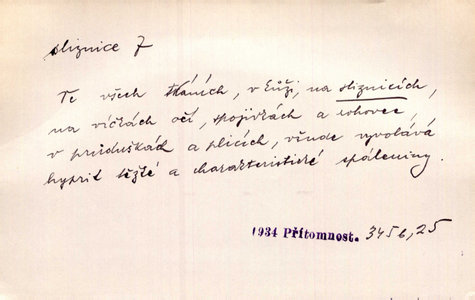 sliznice f
Ve všech tkáních, v kůži, na sliznicích,
na víčkách očí, spojivkách a rohovce,
v průduškách a plicích, všude vyvolává
hyprit těžké a charakteristické spáleniny.
1934 Přítomnost. 345b, 25